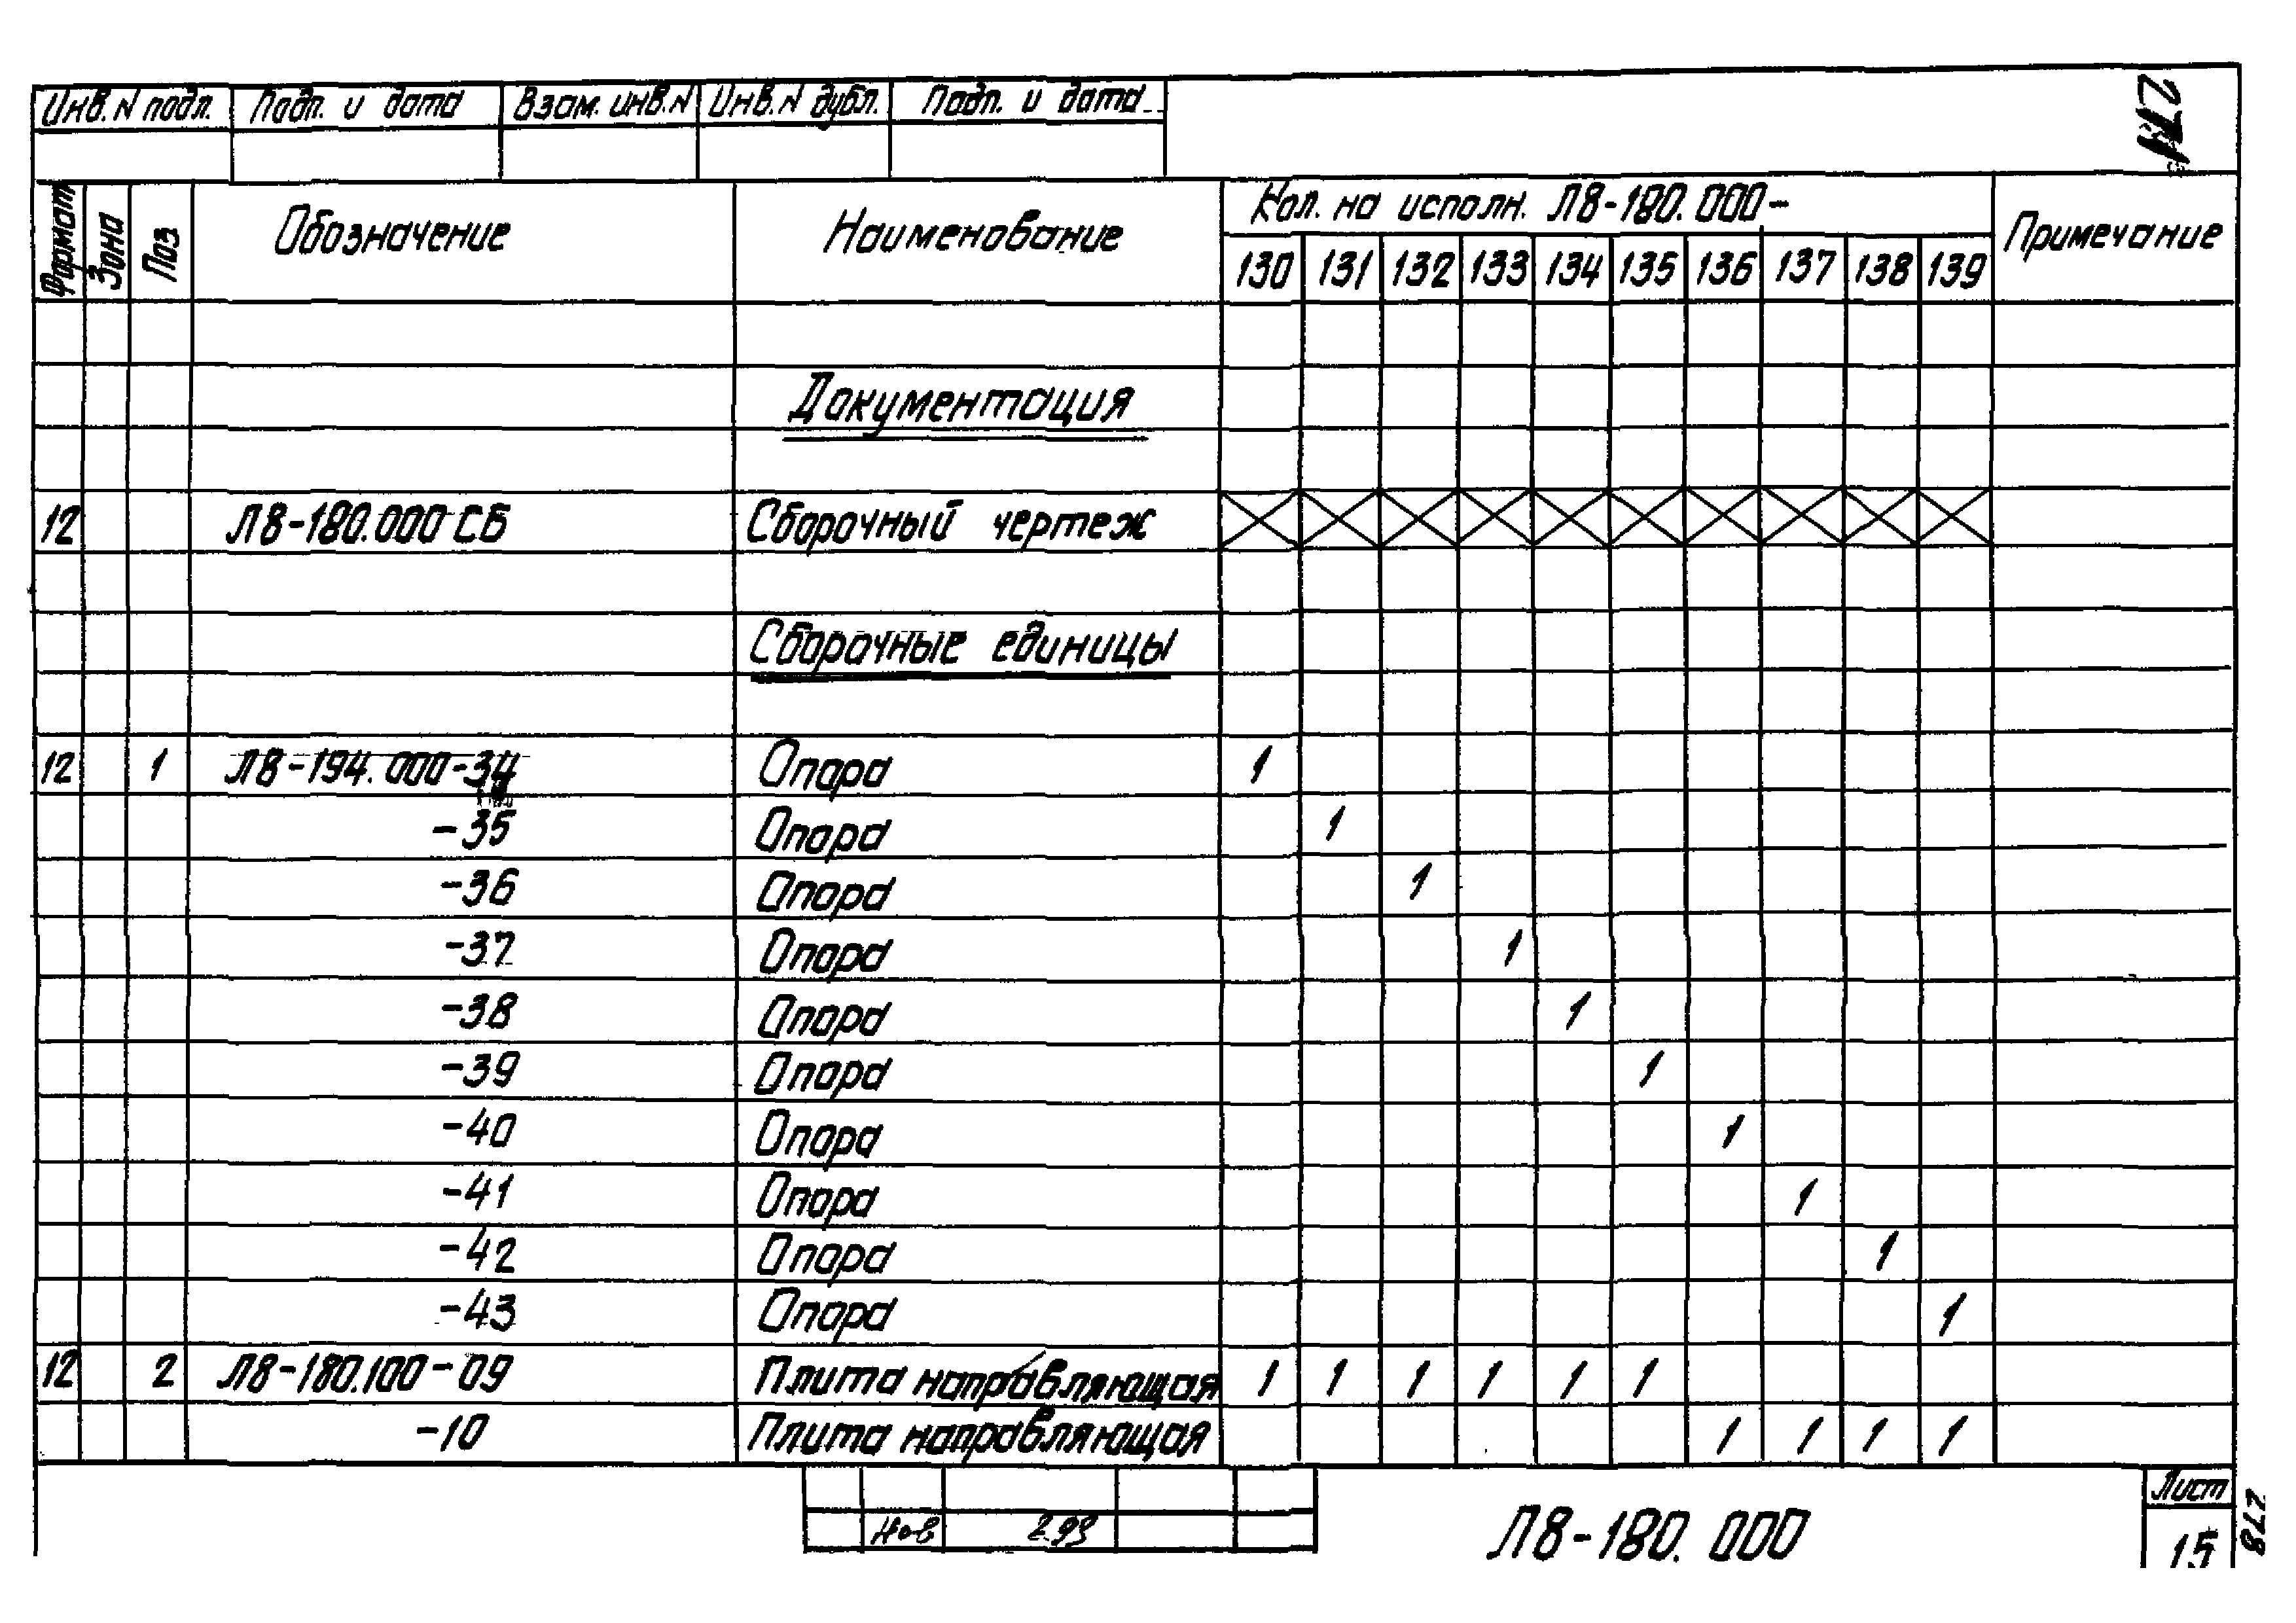 Инв. N подл. Подп. и дата Взам. инв. N Инв. N дубл. Подп. и дата
271
Формат Зона Поз Обозначение Наименование Кол. на исполн. Л8-180.000- Примечание
130 131 132 133 134 135 136 137 138 139
Документация
12 Л8-180.000 СБ Сборочный чертеж
Сборочные единицы
12 1 Л8-194.000-34 Опора 1
-35 Опора 1
-36 Опора 1
-37 Опора 1
-38 Опора 1
-39 Опора 1
-40 Опора 1
-41 Опора 1
-42 Опора 1
-43 Опора 1
12 2 Л8-180.100-09 Плита направляющая 1 1 1 1 1 1
-10 Плита направляющая 1 1 1 1
Нов 2.93
Л8-180. 000
Лист
15
278